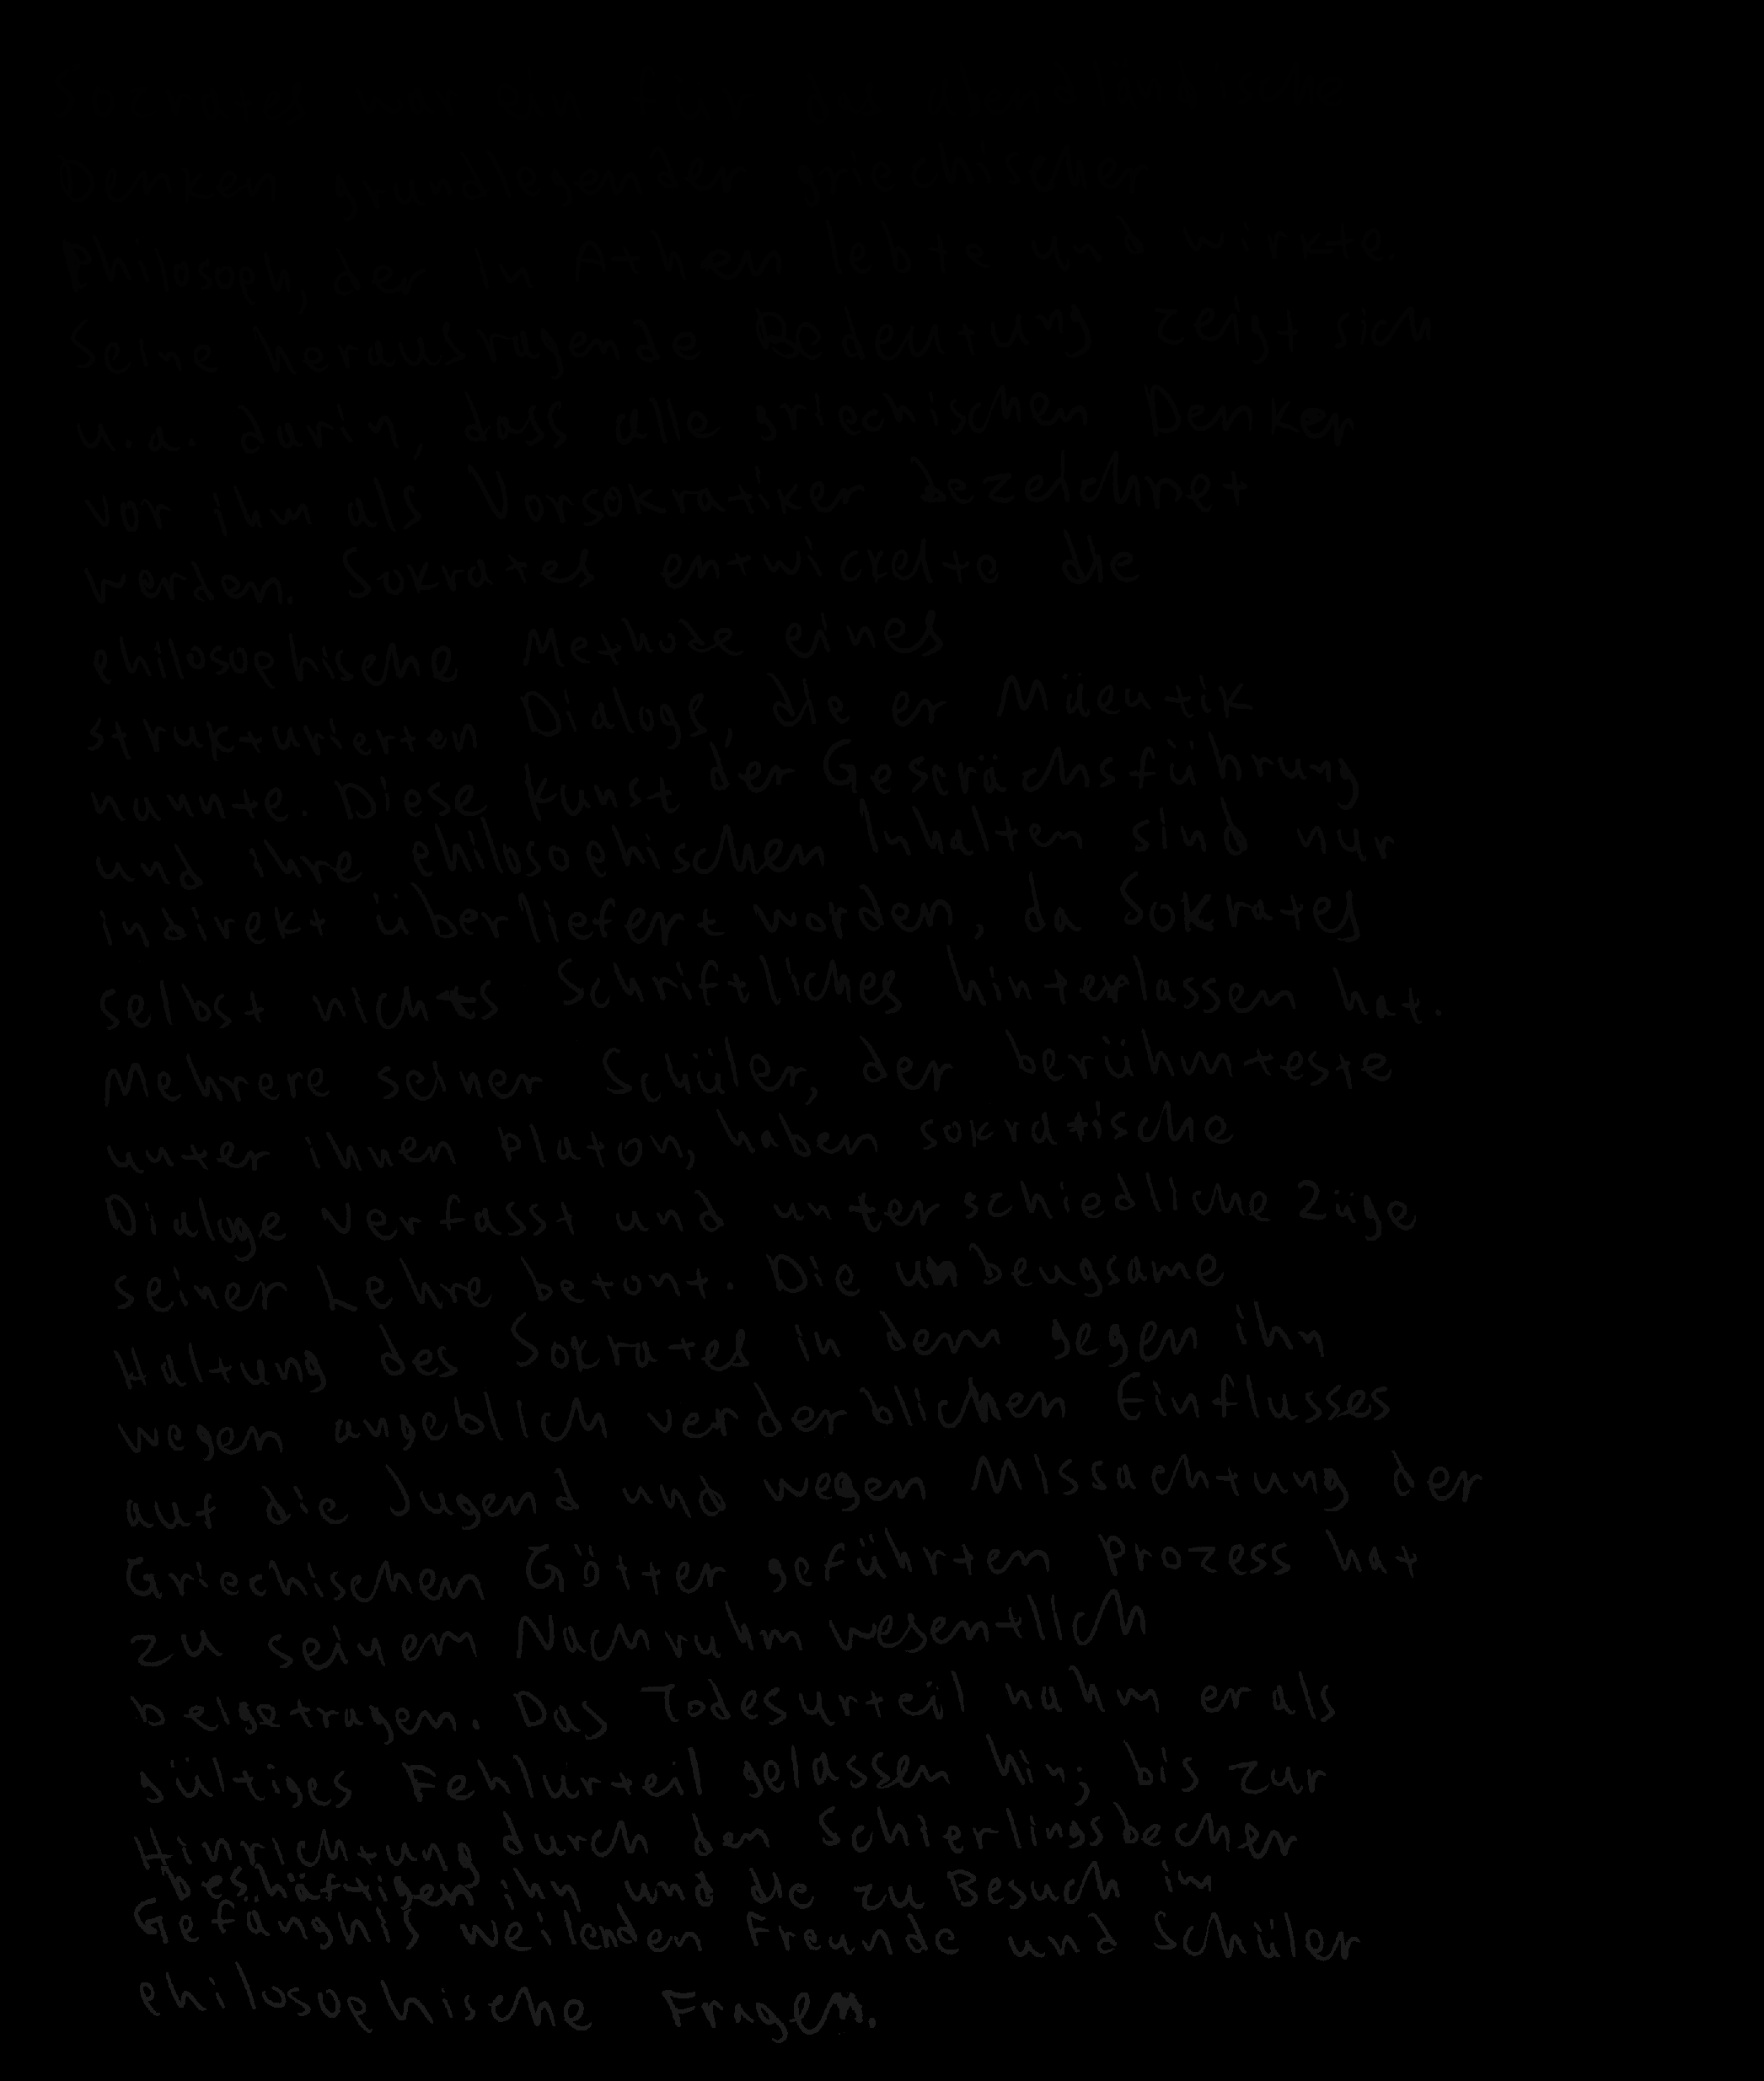 Denken grundlegender griechischer
Philosoph, der in Athen lebte und wirkte.
Seine herausragende Bedeutung zeigt sich
u.a. darin, dass alle griechischen Denker
vor ihm als Vorsokratiker bezeichnet
werden. Sokrates entwickelte die
philosophische Methode eines
strukturierten Dialogs, die er Mäeutik
nannte. Diese Kunst der Gesprächsführung
und ihre philosophischen Inhalten sind nur
indirekt überliefert worden, da Sokrates
selbst nichts Schriftliches hinterlassen hat.
Mehrere seiner Schüler, der berühmteste
unter ihnen Platon, haben sokratische
Dialoge verfasst und unterschiedliche Züge
seiner Lehre betont. Die unbeugsame
Haltung des Sokrates in dem gegen ihn
wegen angeblich verderblichen Einflusses
auf die Jugend und wegen Missachtung der
Griechischen Götter geführten Prozess hat
zu seinem Nachruhm wesentlich
beigetragen. Das Todesurteil nahm er als
gültiges Fehlurteil gelassen hin; bis zur
Hinrichtung durch den Schierlingsbecher
beshäftigen ihn und die zu Besuch im
Gefängnis weilenden Freunde und Schüler
philosophische Fragen.